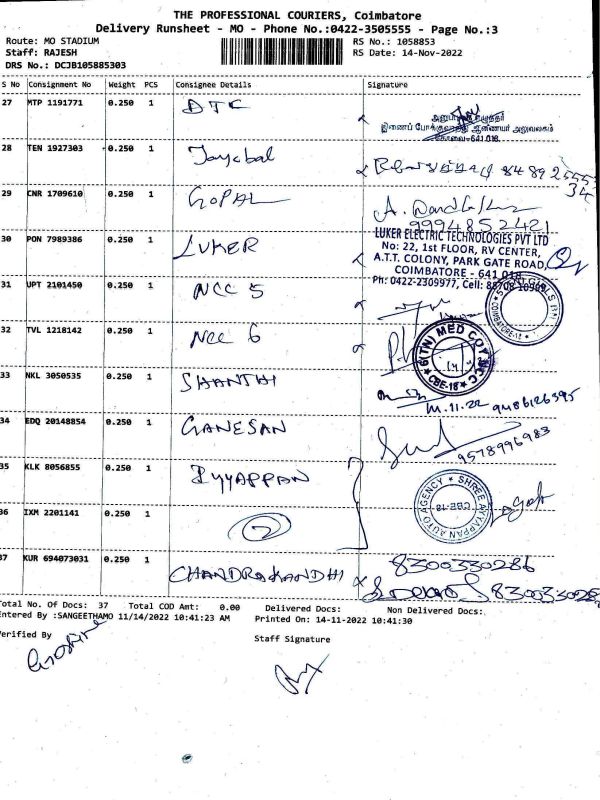 THE PROFESSIONAL COURIERS, Coimbatore
Delivery Runsheet - MO - Phone No.:0422-3505555 - Page No.:3
Route: MO STADIUM
RS No.: 1058853
Staff: RAJESH
RS Date: 14-Nov-2022
DRS No.: DCJB105885303
S No Consignment No Weight PCS Consignee Details Signature
27 MTP 1191771 0.250 1 DTC
இணைப் போக்குவரத்து ஆணையர் அலுவலகம்
கோவை-641 018.
28 TEN 1927303 0.250 1 Jayabal
29 CNR 1709610 0.250 1 GOPAL
9994852421
30 PON 7989386 0.250 1 LUKER
LUKER ELECTRIC TECHNOLOGIES PVT LTD
No: 22, 1st FLOOR, RV CENTER,
A.T.T. COLONY, PARK GATE ROAD,
COIMBATORE - 641 018
Ph: 0422-2309977, Cell:
31 UPT 2101450 0.250 1 NCC 5
32 TVL 1218142 0.250 1 NCC 6
6(TN) MED COY NCC
CBE-18
33 NKL 3050535 0.250 1 SHANTHI
9486126395
34 EDQ 20148854 0.250 1 GANESAN
9578996983
35 KLK 8056855 0.250 1 IYYAPPAN
SHREE AYYAPPAN AUTO AGENCY
CBE-18
36 IXM 2201141 0.250 1 2
37 KUR 694073031 0.250 1 CHANDRAKANDHI
8300330286
Total No. Of Docs: 37 Total COD Amt: 0.00 Delivered Docs: Non Delivered Docs:
Entered By :SANGEETHAMO 11/14/2022 10:41:23 AM Printed On: 14-11-2022 10:41:30
Verified By
Staff Signature